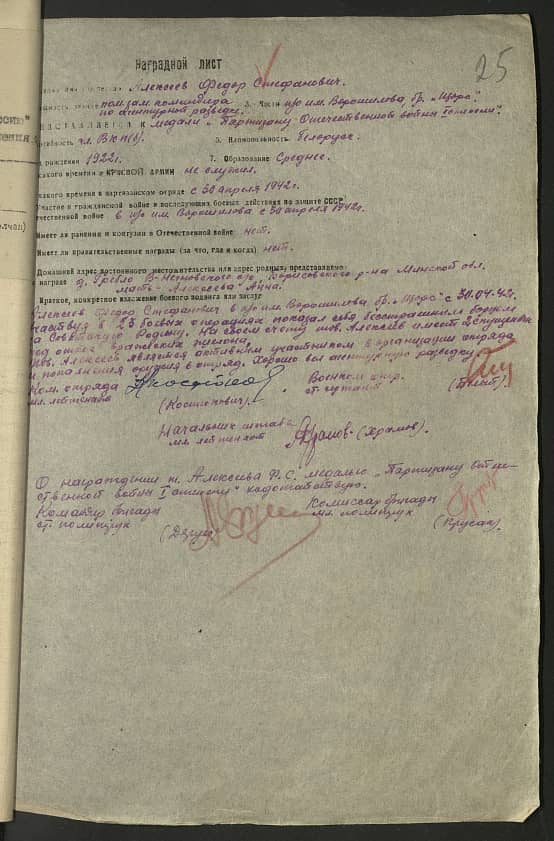 25
Наградной лист
Алексеев Федор Стефанович.
пом. зам. командира
по агентурной разведке 3. Части п/о им. Ворошилова, бр. "Щорс".
к медали "Партизану Отечественной войны I степени".
чл. ВКП(б). 5. Национальность белорус.
рождения 1922 г. 7. Образование Среднее.
какого времени в КРАСНОЙ АРМИИ не служил.
какого времени в партизанском отряде с 30 апреля 1942 г.
Участие в гражданской войне и последующих боевых действиях по защите СССР
отечественной войне в п/о им. Ворошилова с 30 апреля 1942 г.
Имеет ли ранения и контузии в Отечественной войне нет.
Имеет ли правительственные награды (за что, где и когда) нет.
Домашний адрес постоянного жительства или адрес родных представляемого
к награде д. В- с/с Борисовского р-на Минской обл.
мать- Алексеева Анна.
Краткое, конкретное изложение боевого подвига или заслуг
Алексеев Федор Стефанович в п/о им. Ворошилова, бр. "Щорс" с 30.04.42 г.
участвуя в 25 боевых операциях показал себя бесстрашным борцом
за Советскую Родину. На своем счету тов. Алексеев имеет 2 спущенных
под откос вражеских эшелона.
тов. Алексеев является активным участником в организации отряда
и пополнения оружия в отряд. Хорошо вел агентурную разведку.
Ком. отряда
мл. лейтенант
(Костюкович).
Военком отр.
ст. сержант
Начальник штаба
мл. лейтенант (Храмов).
О награждении т. Алексеева Ф.С. медалью "Партизану Отече-
ственной войны I степени" ходатайствую.
Командир бригады
ст. политрук
Комиссар бригады
мл. политрук
(Прусак)